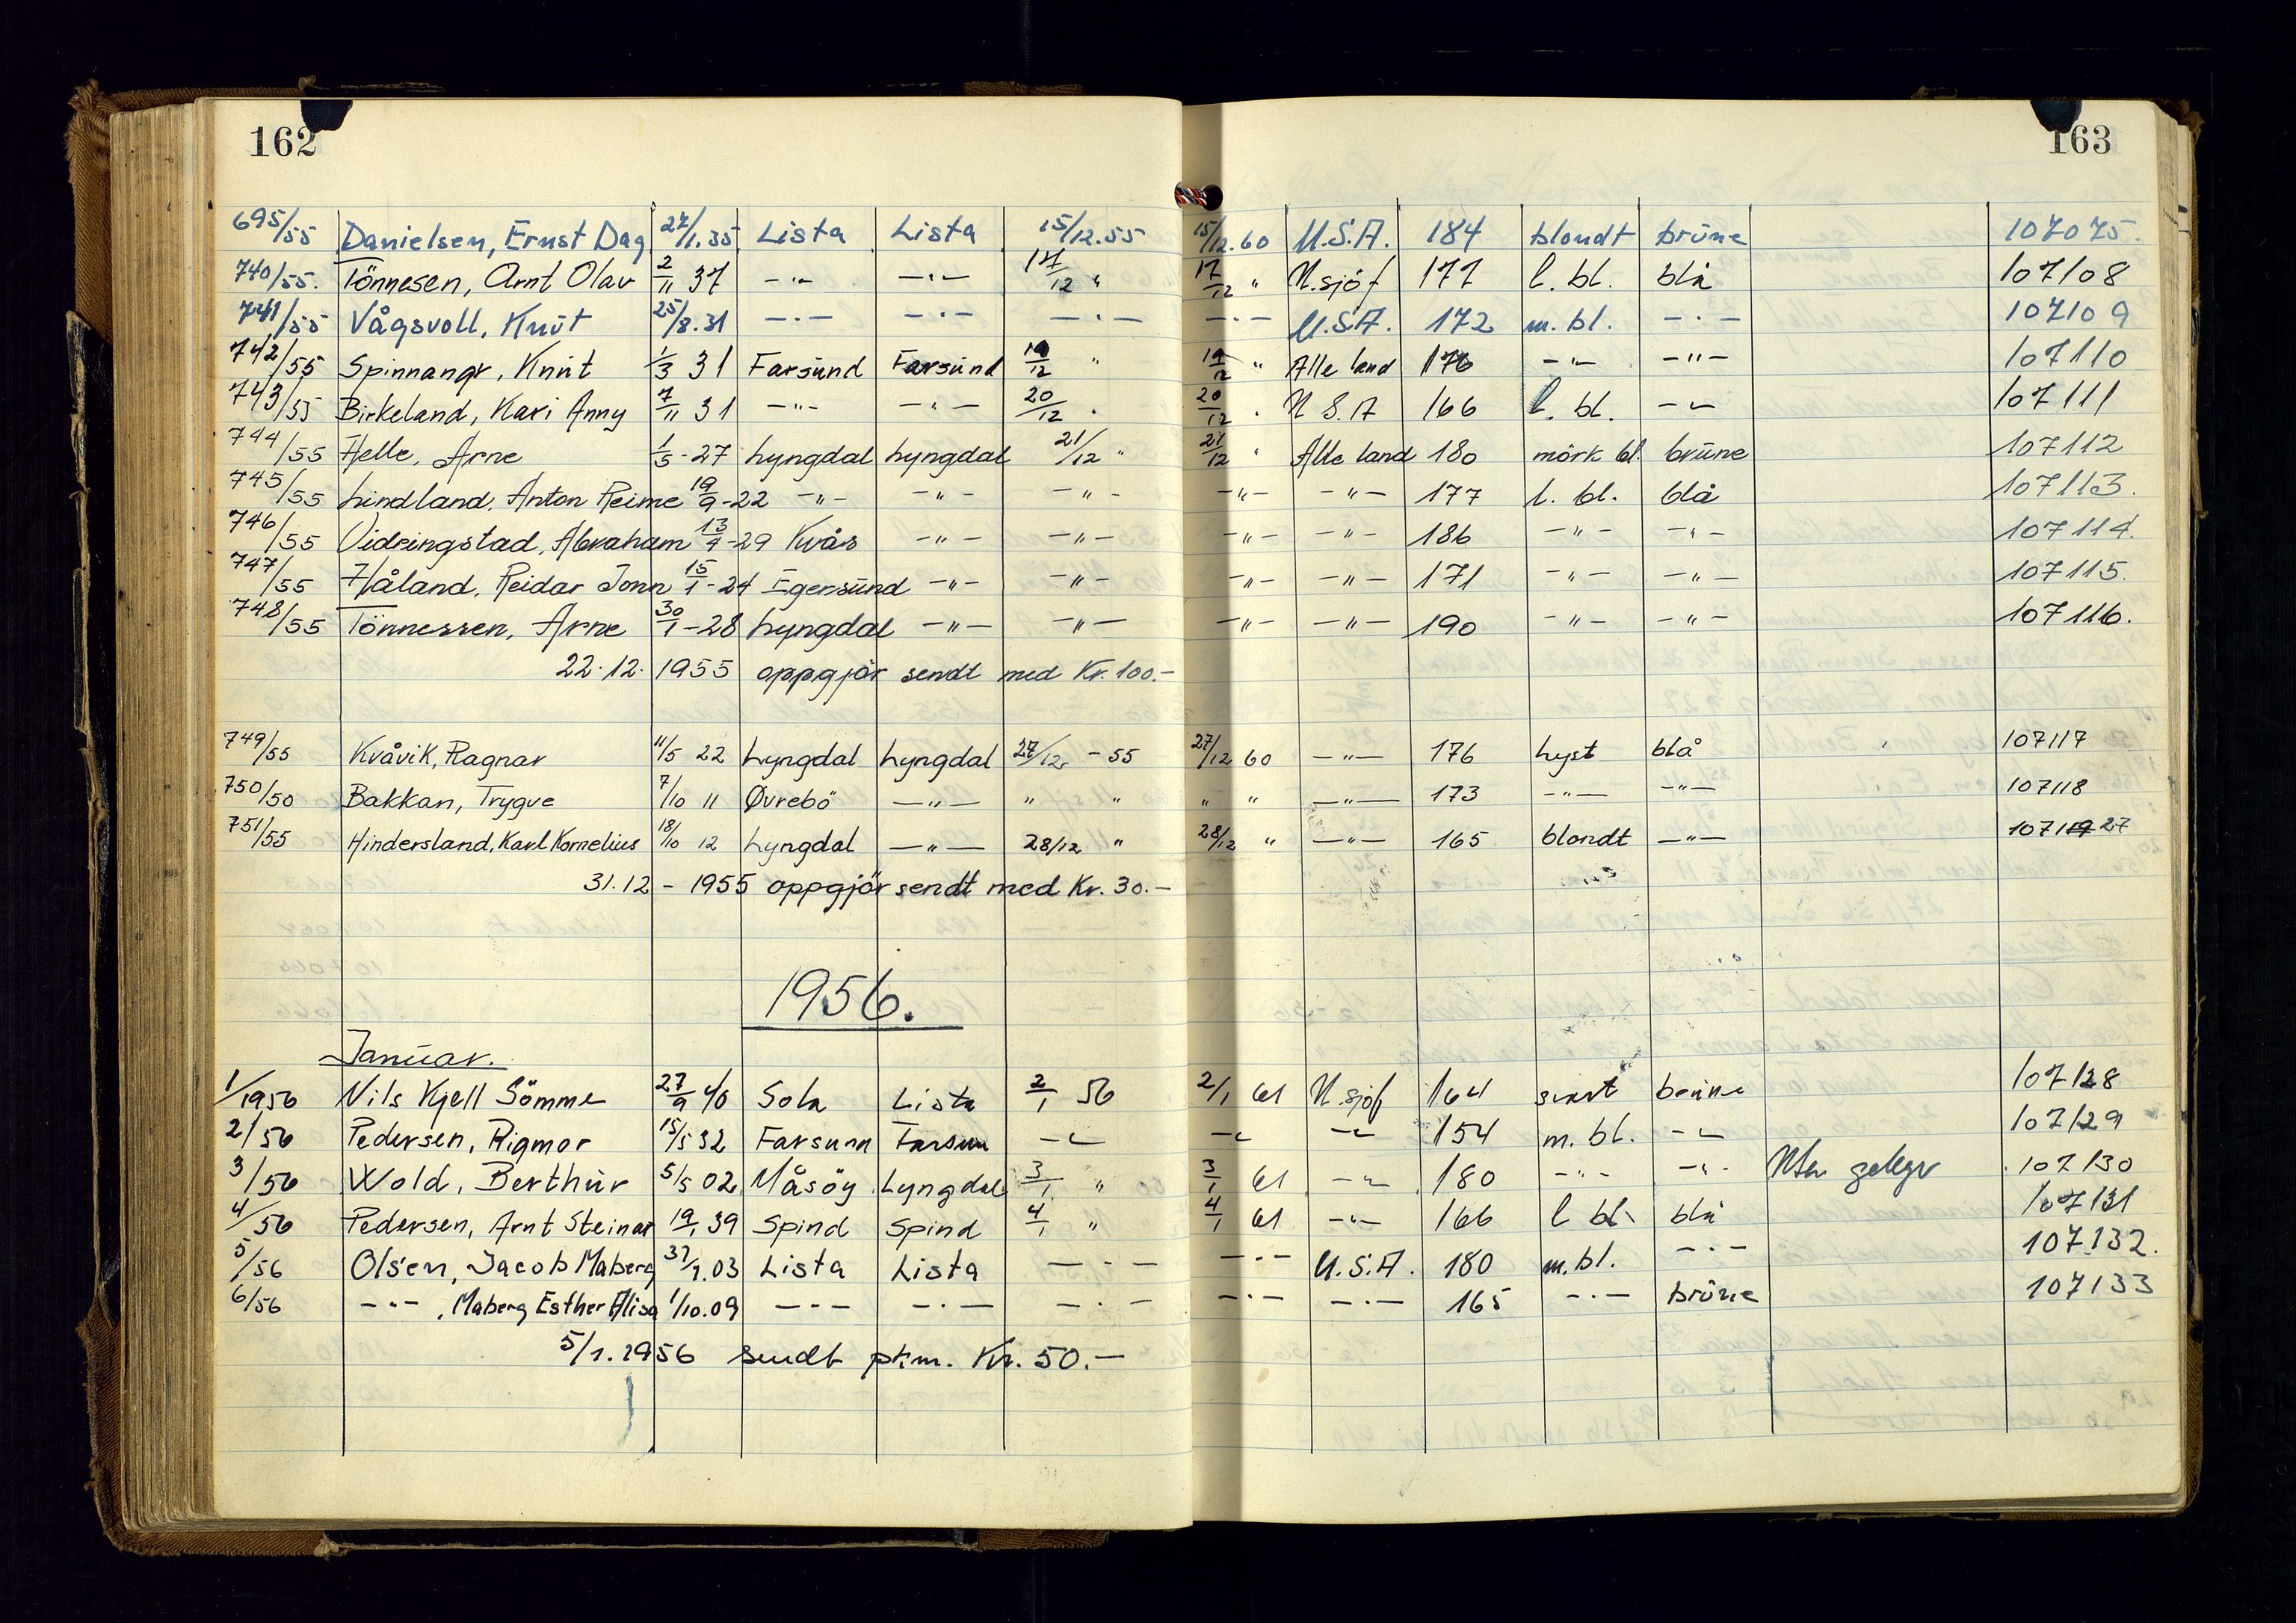 162
163
695/55 Danielsen, Ernst Dag 27/1.35 Lista Lista 15/12.55 15/12.60 U.S.A. 184 blondt brune 107075.
740/55. Tönnesen, Arnt Olav 2/11 37 -"- -"- 17/12 " 17/12 " U.sjöf 177 l. bl. blå 107108
741/55 Vågsvoll, Knut 25/8.31 -"- -"- -"- -"- U.S.A. 172 m. bl. -"- 107109
742/55 Spinnangr, Knut 1/3 31 Farsund Farsund 19/12 " 19/12 " Alle land 176 -"- -"- 107110
743/55 Birkeland, Kari Anny 7/11 31 -"- -"- 20/12 " 20/12 " U S. A 166 l. bl. -"- 107111
744/55 Helle, Arne 1/5-27 Lyngdal Lyngdal 21/12 " 21/12 " Alle land 180 mörk bl. brune 107112
745/55 Lindland, Anton Reime 19/9-22 -"- -"- -"- -"- -"- 177 l. bl. blå 107113.
746/55 Vidringstad, Abraham 13/4-29 Kvås -"- -"- -"- -"- 186 -"- -"- 107114.
747/55 Håland, Reidar Jonn 15/1-24 Egersund -"- -"- -"- -"- 171 -"- -"- 107115.
748/55 Tönnessen, Arne 30/1-28 Lyngdal -"- -"- -"- -"- 190 -"- -"- 107116.
22.12. 1955 oppgjör sendt med Kr. 100.-
749/55 Kvåvik, Ragnar 11/5 22 Lyngdal Lyngdal 27/12 - 55 27/12 60 -"- 176 Lyst blå 107117
750/50 Bakkan, Trygve 7/10 11 Øvrebö -"- " " " " -"- 173 -"- -"- 107118
751/55 Hindersland, Karl Kornelius 18/10 12 Lyngdal -"- 28/12 " 28/12 " -"- 165 blondt -"- 10711927
31.12 - 1955 oppgjör sendt med Kr. 30.-
1956.
Januar.
1/1956 Nils Kjell Sömme 27/9 40 Sola Lista 2/1 56 2/1 61 U.sjöf 164 svart brune 107128
2/56 Pedersen, Rigmor 15/5 32 Farsunn Farsun -"- -"- -"- 154 m. bl. -"- 107129
3/56 Wold, Berthur 5/5 02 Måsöy Lyngdal 3/1 " 3/1 61 -"- 180 -"- -"- 107130
4/56 Pedersen, Arnt Steinar 19/1 39 Spind Spind 4/1 " 4/1 61 -"- 166 l bl. blå 107131
5/56 Olsen, Jacob Maberg 31/1.03 Lista Lista -"- -"- U.S.A. 180 m.bl. -"- 107132.
6/56 -"- , Maberg Esther Alisa 1/10.09 -"- -"- -"- -"- -"- 165 -"- brune 107133
5/1.1956 sendt pr.m. Kr. 50.-